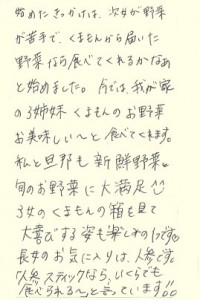 始めたきっかけは、次女が野菜
が苦手で、くまモンから届いた
野菜なら食べてくれるかなぁ
と始めました。今では、我が家
の3姉妹 くまもんのお野菜
お美味しい〜と食べてくれます。
私と旦那も新鮮野菜。
旬のお野菜に大満足
3女のくまもんの箱を見て
大喜びする姿も楽しみの1つです。
長女のお気に入りは、人参です。
「人参スティックなら、いくらでも
食べられる〜」と言っています!!